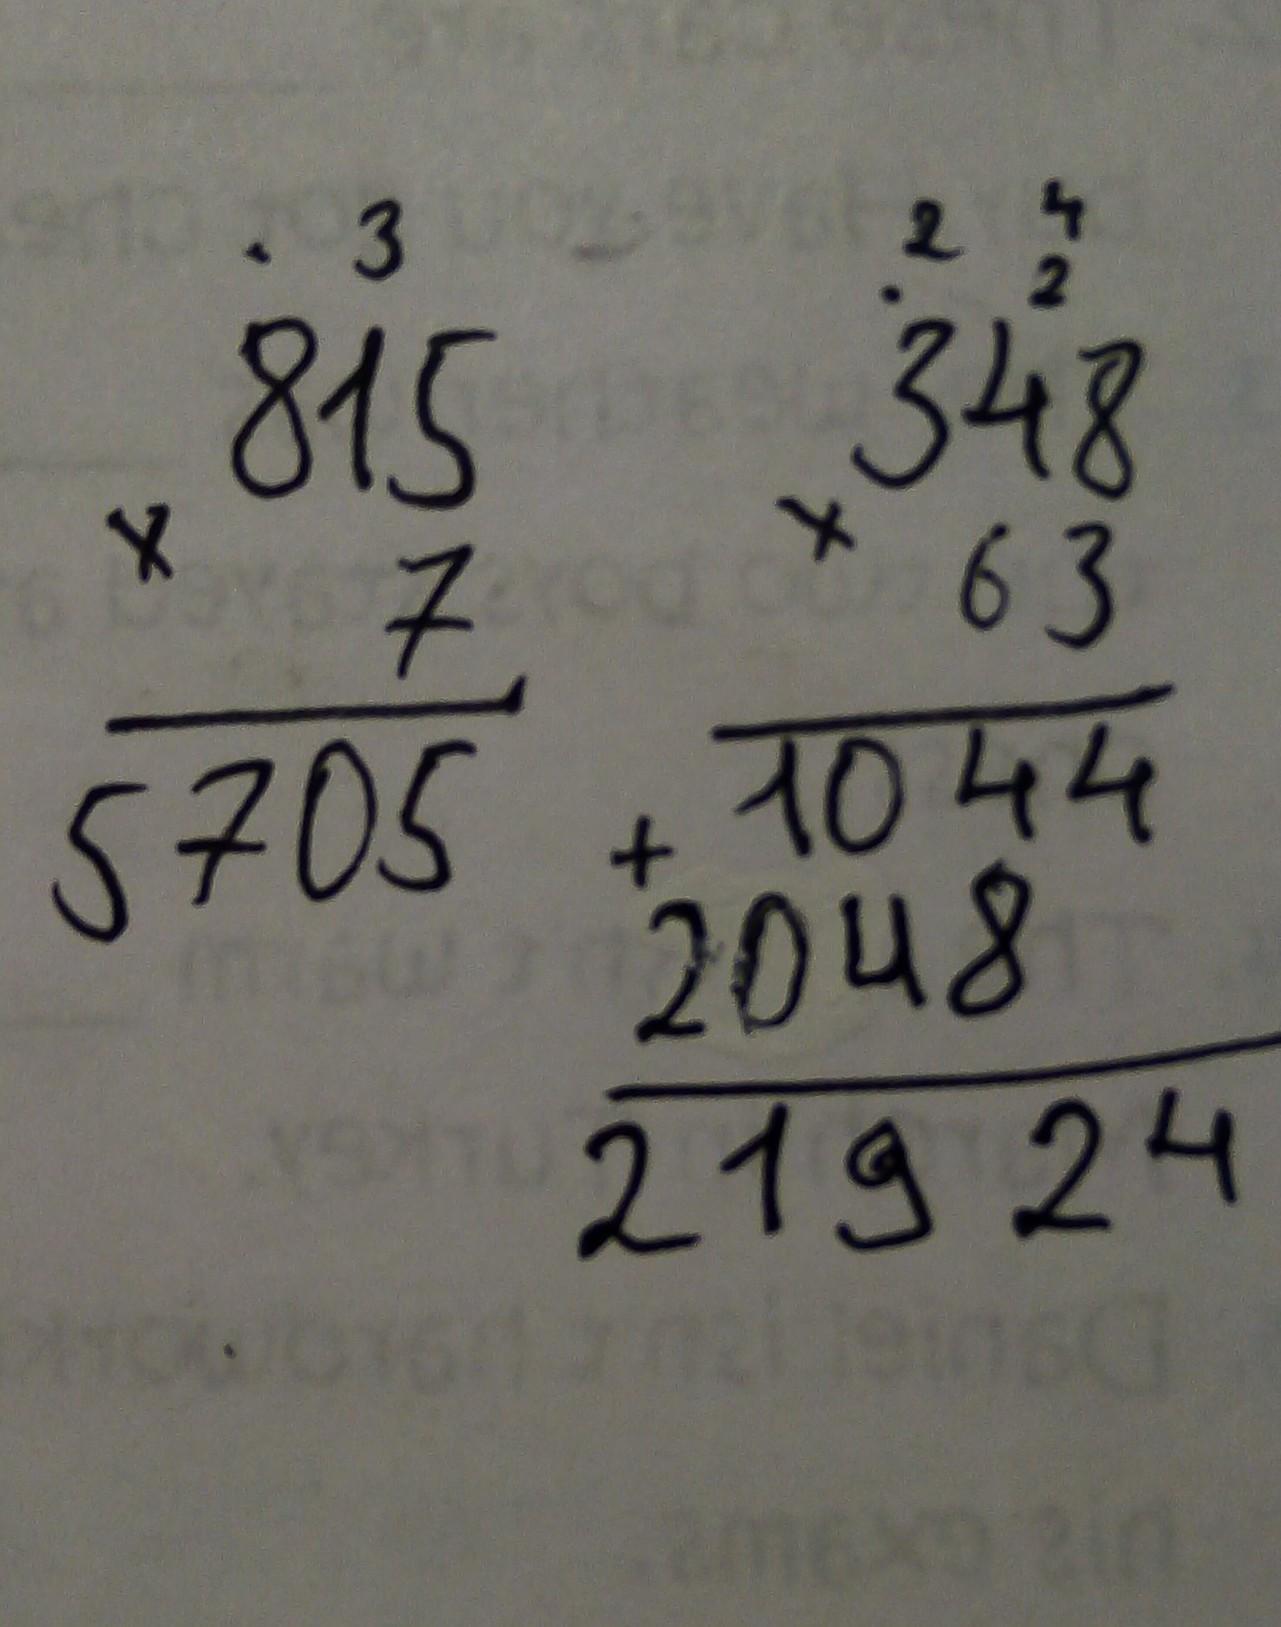 3
815
x 7
5705
2 4
2
348
x 63
1044
+
2048
21924